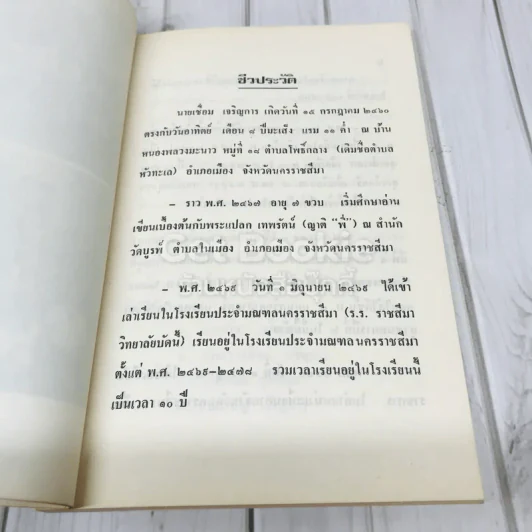 ชีวประวัติ
นายเชื่อม เจริญการ เกิดวันที่ ๑๕ กรกฎาคม ๒๔๖๐
ตรงกับวันอาทิตย์ เดือน ๘ ปีมะเส็ง แรม ๑๑ ค่ำ ณ บ้าน
หนองหลวงมะนาว หมู่ที่ ๑๘ ตำบลโพธิ์กลาง (เดิมชื่อตำบล
หัวทะเล) อำเภอเมือง จังหวัดนครราชสีมา
– ราว พ.ศ. ๒๔๖๗ อายุ ๗ ขวบ เริ่มศึกษาอ่าน
เขียนเบื้องต้นกับพระแปลก เทพรัตน์ (ญาติ "พี่") ณ สำนัก
วัดบูรพ์ ตำบลในเมือง อำเภอเมือง จังหวัดนครราชสีมา
– พ.ศ. ๒๔๖๙ วันที่ ๑ มิถุนายน ๒๔๖๙ ได้เข้า
เล่าเรียนในโรงเรียนประจำมณฑลนครราชสีมา (ร.ร. ราชสีมา
วิทยาลัยบัดนี้) เรียนอยู่ในโรงเรียนประจำมณฑลนครราชสีมา
ตั้งแต่ พ.ศ. ๒๔๖๙–๒๔๗๘ รวมเวลาเรียนอยู่ในโรงเรียนนี้
เป็นเวลา ๑๐ ปี
Get Bookie